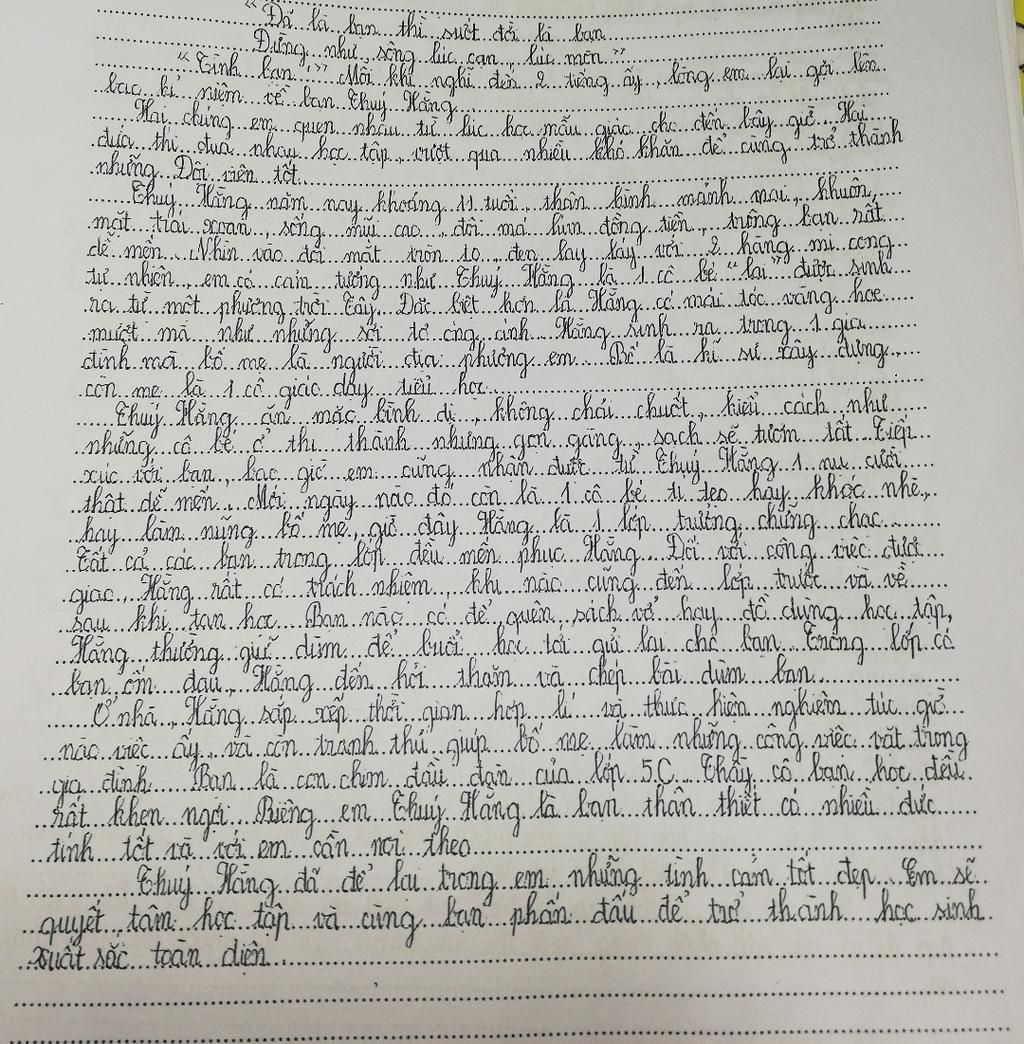 "Đã là bạn thì suốt đời là bạn
Đừng như sông lúc cạn, lúc mền"
"Tình bạn!" Mỗi khi nghĩ đến 2 tiếng ấy, lòng em lại gợi lên
bao kỉ niệm về bạn Thuý Hằng
Hai chúng em quen nhau từ lúc học mẫu giáo cho đến bây giờ. Hai
đứa thi đua nhau học tập, vượt qua nhiều khó khăn để cùng trở thành
những Đội viên tốt.
Thuý Hằng năm nay khoảng 11 tuổi, thân hình mảnh mai, khuôn
mặt trái xoan, sống mũi cao, đôi má lúm đồng tiền, trông bạn rất
dễ mến. Nhìn vào đôi mắt tròn to, đen lay láy với 2 hàng mi cong
tự nhiên, em có cảm tưởng như Thuý Hằng là 1 cô bé "lai" được sinh
ra từ một phương trời Tây. Đặc biệt hơn là Hằng có mái tóc vàng hoe
mượt mà như những sợi tơ óng ánh. Hằng sinh ra trong 1 gia
đình mà bố mẹ là người địa phương em. Bố là kĩ sư xây dựng,
còn mẹ là 1 cô giáo dạy tiểu học.
Thuý Hằng ăn mặc bình dị, không chải chuốt, kiểu cách như
những cô bé ở thị thành nhưng gọn gàng, sạch sẽ tươm tất. Tiếp
xúc với bạn, bao giờ em cũng nhận được từ Thuý Hằng 1 nụ cười
thật dễ mến. Mới ngày nào đó còn là 1 cô bé tí teo hay khóc nhè,
hay làm nũng bố mẹ, giờ đây Hằng là 1 lớp trưởng chững chạc.
Tất cả các bạn trong lớp đều mến phục Hằng. Đối với công việc được
giao, Hằng rất có trách nhiệm, khi nào cũng đến lớp trước và về
sau khi tan học. Bạn nào có để quên sách vở hay đồ dùng học tập,
Hằng thường giữ dùm để buổi học tới gửi lại cho bạn. Trong lớp có
bạn ốm đau, Hằng đến hỏi thăm và chép bài dùm bạn.
Ở nhà, Hằng sắp xếp thời gian hợp lí và thực hiện nghiêm túc giờ
nào việc ấy, và còn tranh thủ giúp bố mẹ làm những công việc vặt trong
gia đình. Bạn là con chim đầu đàn của lớp 5C. Thầy cô bạn học đều
rất khen ngợi. Riêng em Thuý Hằng là bạn thân thiết có nhiều đức
tính tốt và với em cần noi theo.
Thuý Hằng đã để lại trong em những tình cảm tốt đẹp. Em sẽ
quyết tâm học tập và cùng bạn phấn đấu để trở thành học sinh
xuất sắc toàn diện.